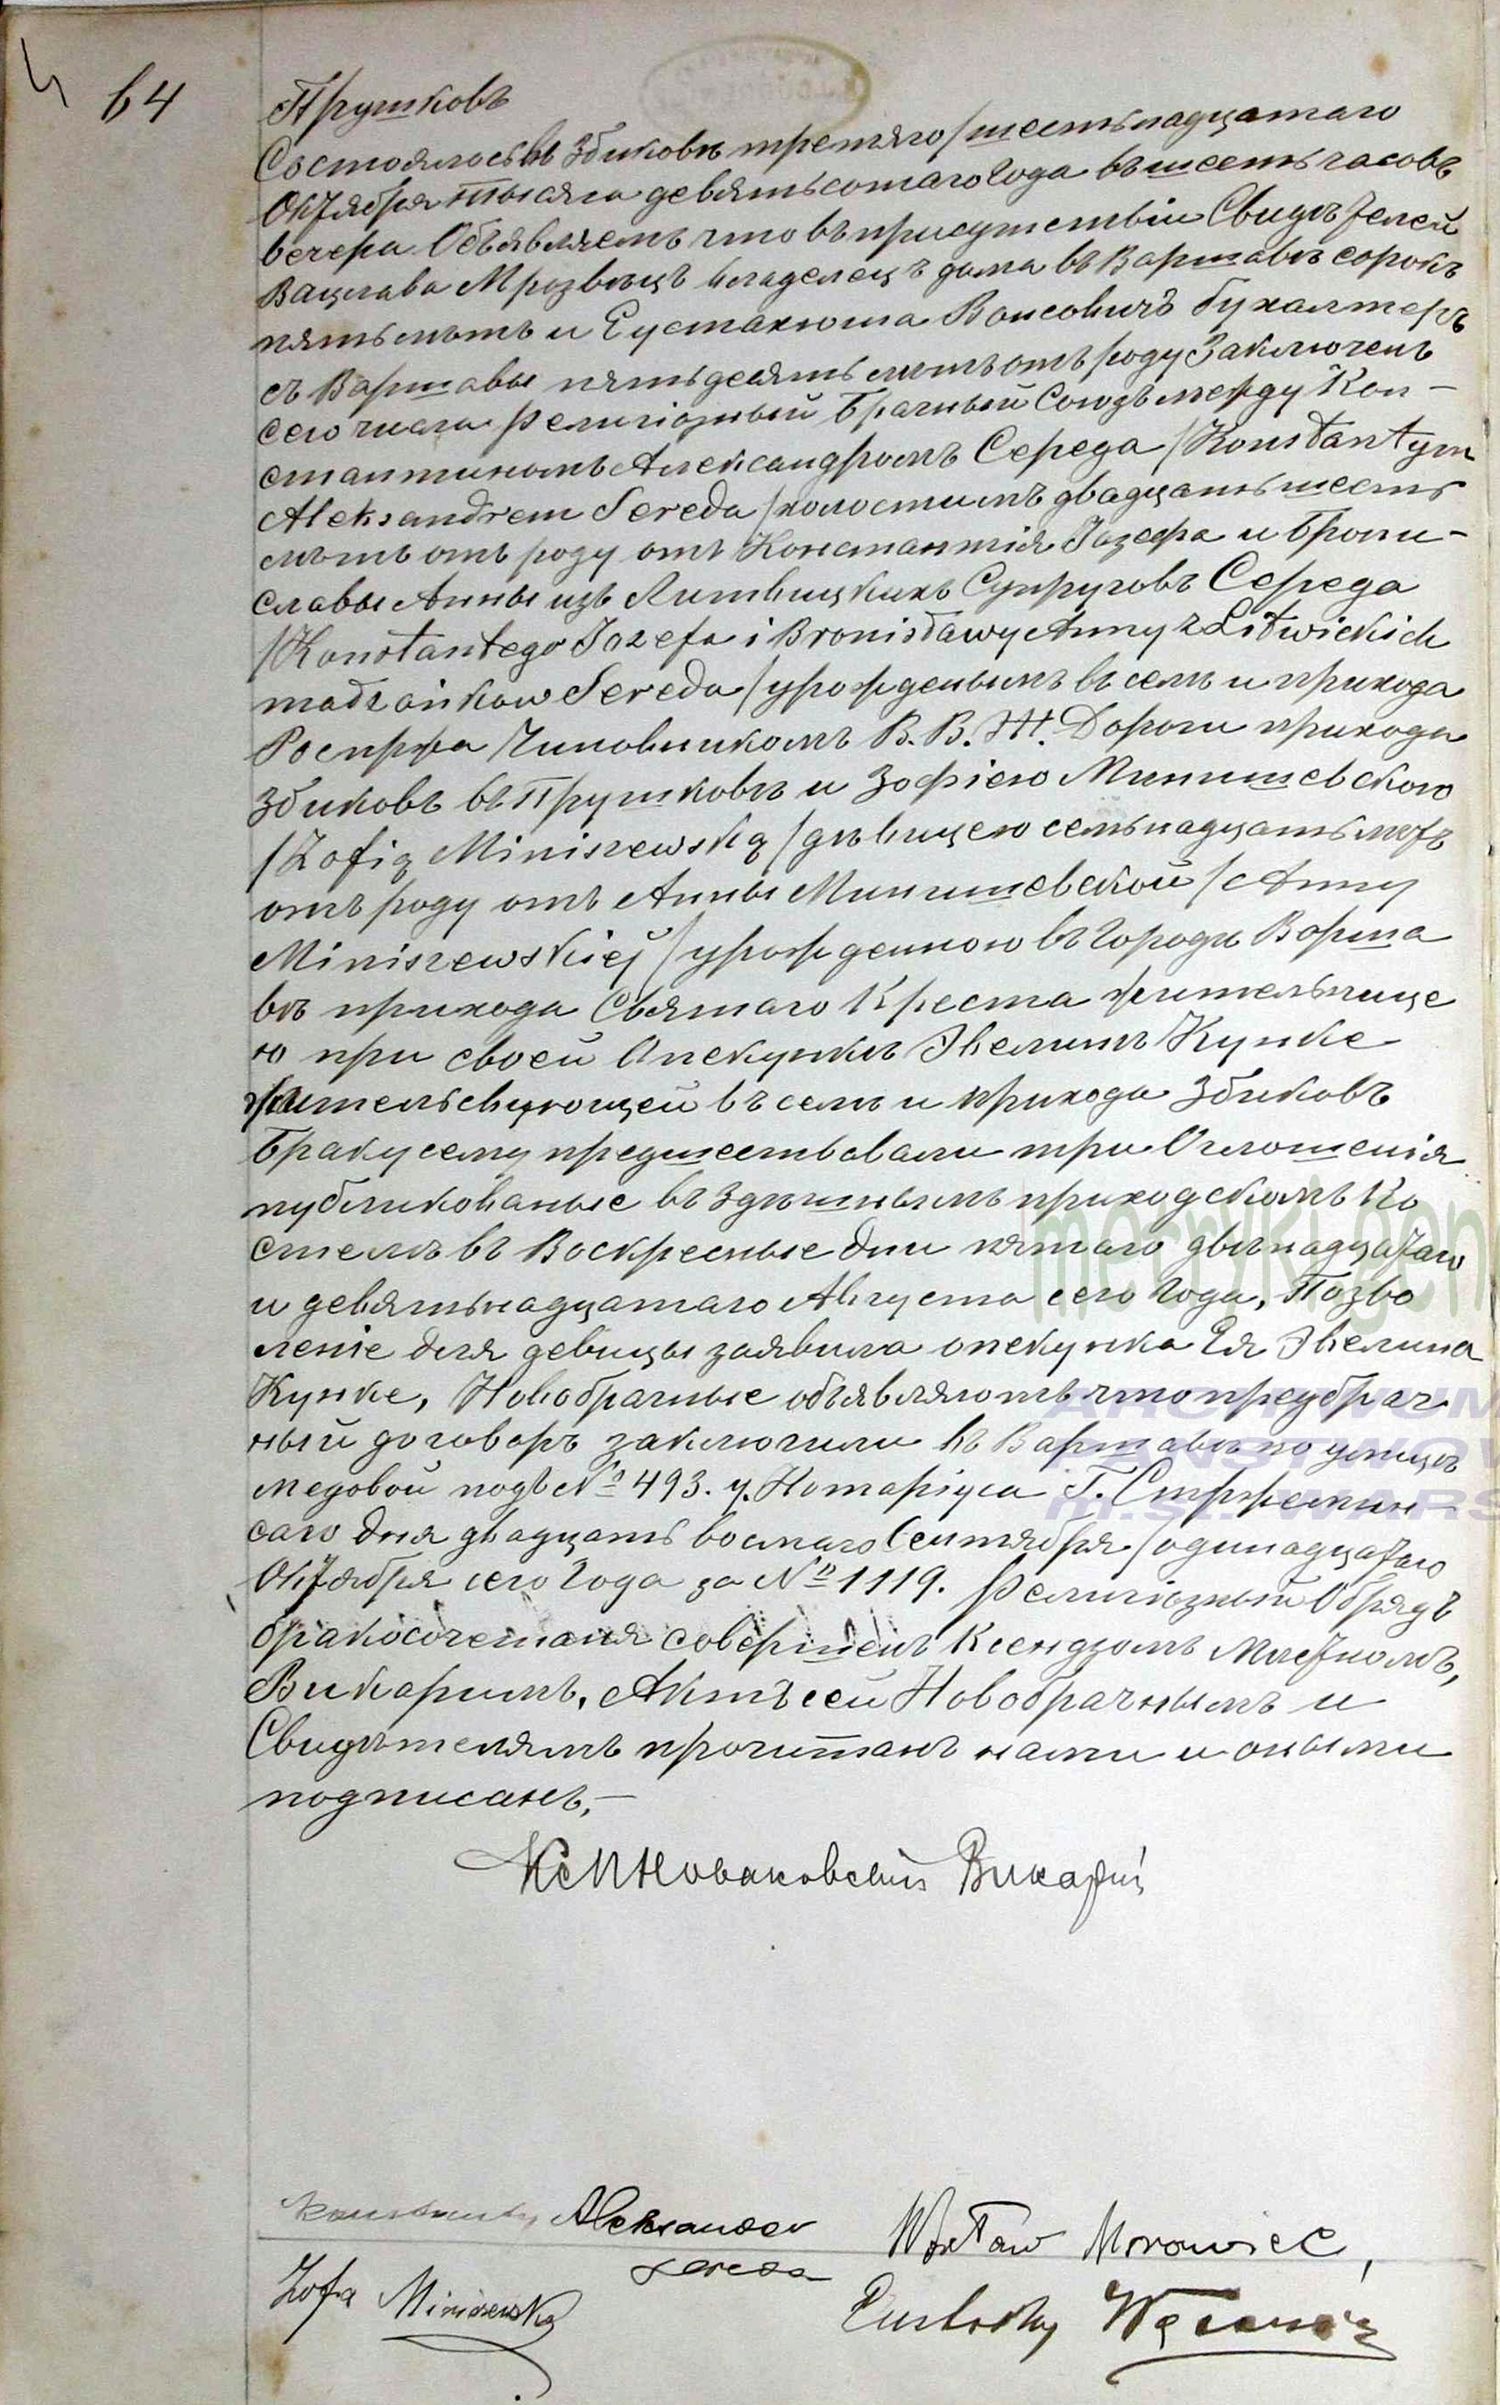 64
Прушковъ
Состоялось въ Збиковѣ третяго /шестьнадцатаго
Октября тысяча девятьсотаго года въ шесть часовъ
вечера. Объявляемъ что въ присутствіи Свидѣтелей
Вацлава Мрозвецъ владелецъ дома въ Варшавѣ сорокъ
пять лѣтъ и Еустахюша Вонсовичъ бухалтеръ
съ Варшавы пятьдесятъ лѣтъ отъ роду Заключенъ
сего числа Религіозный Брачный Союзъ между Кон-
стантиномъ Александромъ Середа /Konstantym
Aleksandrem Sereda/ холостымъ двадцать шесть
лѣтъ отъ роду отъ Константія Іозефа и Брони-
славы Анны изъ Литвицкихъ Супруговъ Середа
/Konstantego Jozefa i Bronisławy Anny z Litwickich
małżonków Sereda/ урожденымъ въ селѣ и прихода
Роспржа Чиновникомъ В. В. Ж. Дороги прихода
Збиковъ въ Прушковѣ и Зофіею Минишевскою
/Zofią Miniszewską/ дѣвицею семьнадцать лѣтъ
отъ роду отъ Анны Минишевской /Anny
Miniszewskiej/ урожденною въ городѣ Варша
вѣ прихода Святаго Креста жительнице
ю при своей Опекункѣ Эвелинѣ Кунке
жительсвующей въ селѣ и прихода Збиковъ
Браку сему предшествовали три Оглошенія
публикованые въ здѣшнымъ приходскомъ Ко
стелѣ въ Воскресные дни пятаго двѣнадцатаго
и девятьнадцатаго Августа сего года, Позво
леніе для девицы заявила опекунка Ея Эвелина
Кунке, Новобрачные объявляютъ что предбрач
ный договоръ заключили въ Варшавѣ по улицѣ
Медовой подъ № 493. у Нотаріуса Г. Стржемин
саго дня двадцать восмаго Сентября /одинадцатаго
Октября сего года за № 1119. Религіозный Обрядъ
бракосочетаня совершенъ Ксендзомъ Млетномъ,
Викаримъ, Актъ сей Новобрачнымъ и
Свидѣтелямъ прочитанъ нами и оными
подписанъ,—
Новаковскій Викарій
Konstanty Aleksander
Sereda
Zofia Miniszewska
Wacław Mrowiec,
Eustachy Wąsowicz
metryki.gen
ARCHIWUM
PAŃSTWOW
m.st. WARS